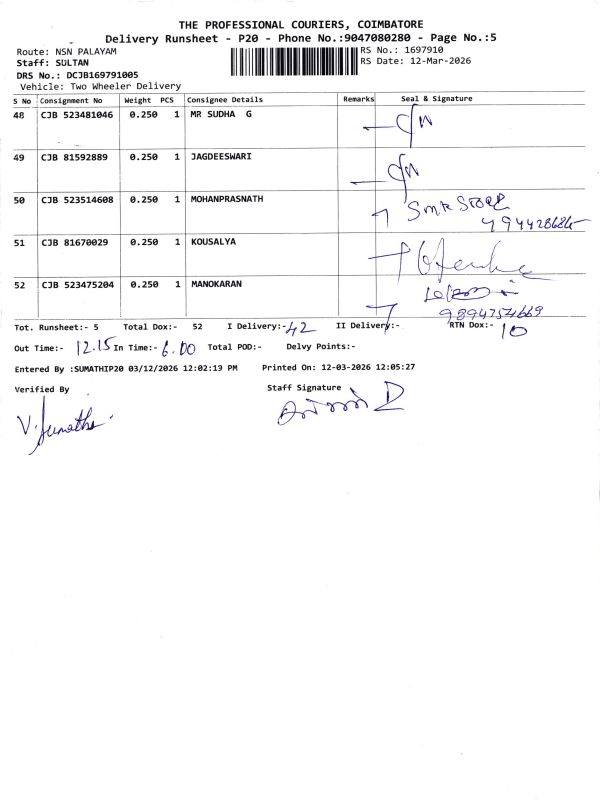 THE PROFESSIONAL COURIERS, COIMBATORE
Delivery Runsheet - P20 - Phone No.:9047080280 - Page No.:5
Route: NSN PALAYAM
RS No.: 1697910
Staff: SULTAN
RS Date: 12-Mar-2026
DRS No.: DCJB169791005
Vehicle: Two Wheeler Delivery
S No Consignment No Weight PCS Consignee Details Remarks Seal & Signature
48 CJB 523481046 0.250 1 MR SUDHA G
49 CJB 81592889 0.250 1 JAGDEESWARI
50 CJB 523514608 0.250 1 MOHANPRASNATH
51 CJB 81670029 0.250 1 KOUSALYA
52 CJB 523475204 0.250 1 MANOKARAN
9894754669
Tot. Runsheet:- 5 Total Dox:- 52 I Delivery:- 42 II Delivery:- RTN Dox:- 10
Out Time:- 12.15 In Time:- 6.00 Total POD:- Delvy Points:-
Entered By :SUMATHIP20 03/12/2026 12:02:19 PM Printed On: 12-03-2026 12:05:27
Verified By Staff Signature
V. Sumathi